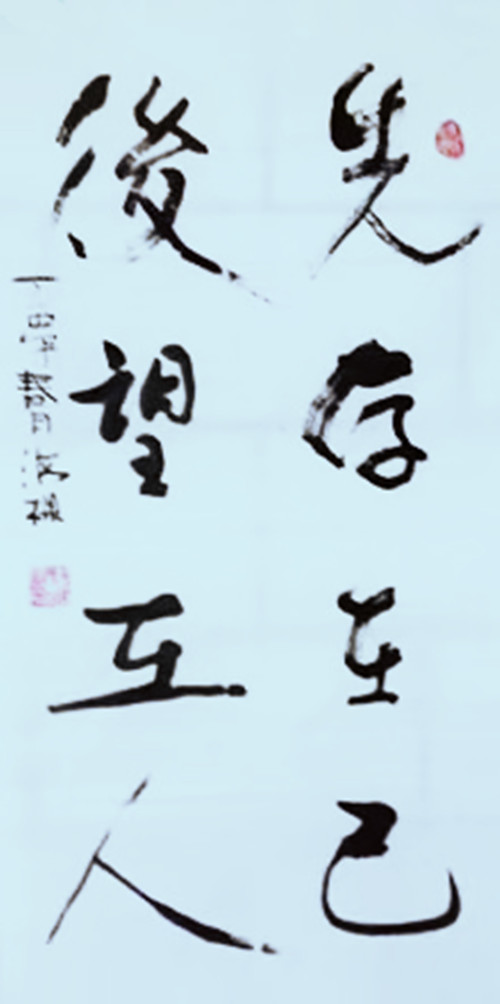 先存在己
後望在人